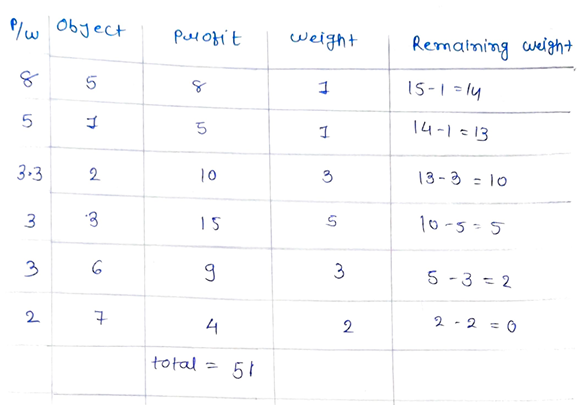 P/w Object Profit Weight Remaining weight
8 5 8 1 15-1=14
5 1 5 1 14-1=13
3.3 2 10 3 13-3=10
3 3 15 5 10-5=5
3 6 9 3 5-3=2
2 7 4 2 2-2=0
total = 51